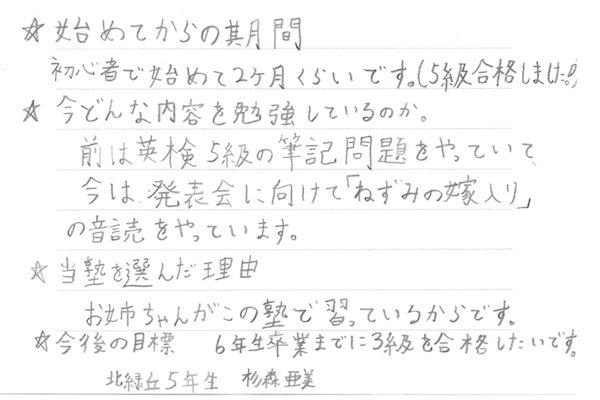 ☆始めてからの期間
初心者で始めて2ヶ月くらいです。(5級合格しました!)
☆今どんな内容を勉強しているのか。
前は英検5級の筆記問題をやっていて、
今は、発表会に向けて「ねずみの嫁入り」
の音読をやっています。
☆当塾を選んだ理由
お姉ちゃんがこの塾で習っているからです。
☆今後の目標 6年生卒業までに3級を合格したいです。
北緑丘5年生 杉森亜美